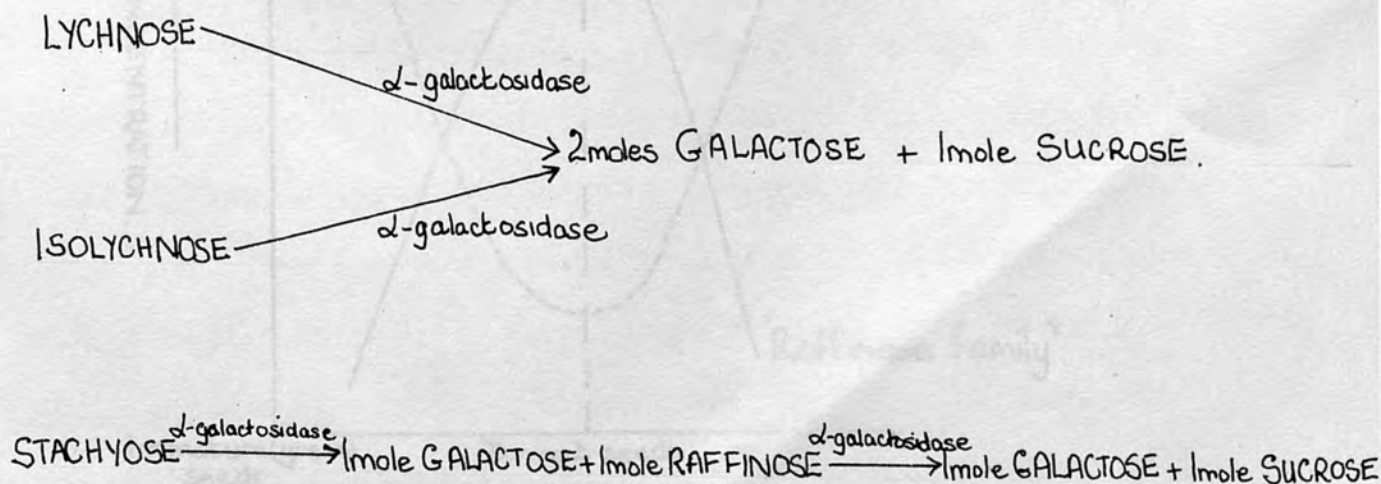 LYCHNOSE
α-galactosidase
2moles GALACTOSE + 1mole SUCROSE.
α-galactosidase
ISOLYCHNOSE
"Raffinose Family"
STACHYOSE α-galactosidase 1mole GALACTOSE+1mole RAFFINOSE α-galactosidase 1mole GALACTOSE + 1mole SUCROSE